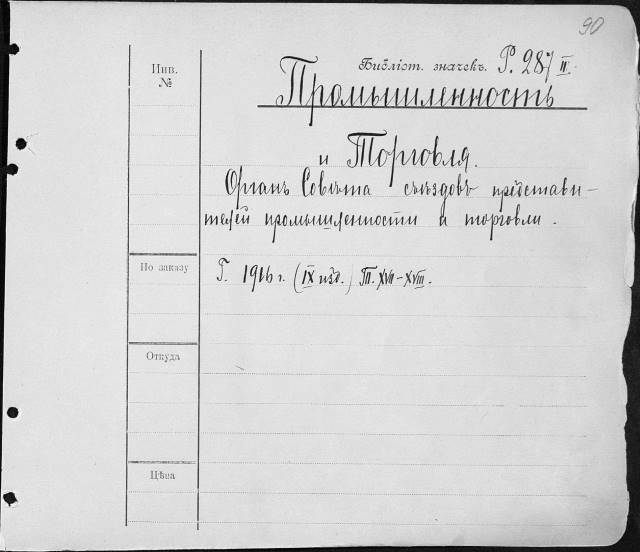 90
Инв. №
Библіот. значекъ. Р. 287 II.
Промышленность
и Торговля.
Органъ Совѣта съѣздовъ представи-
телей промышленности и торговли.
По заказу
Г. 1916 г. (IX изд.) Тт. XVII–XVIII.
Откуда
Цѣна